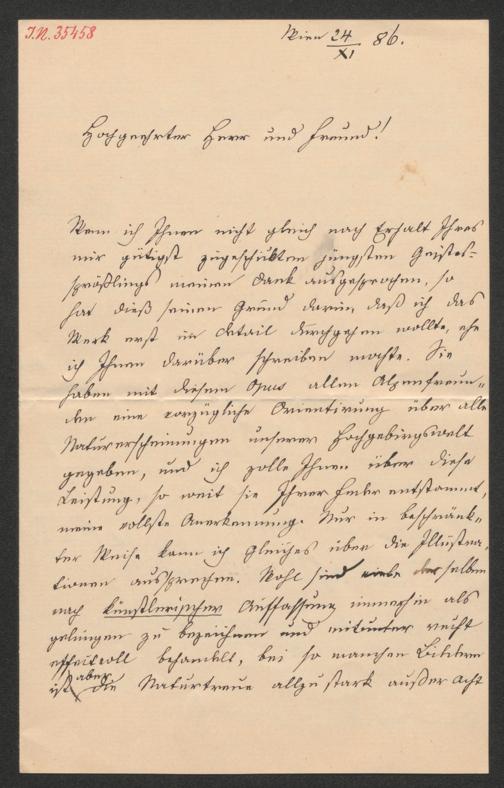 J.N. 35458
Wien 24/XI 86.
Hochgeehrter Herr und Freund!
Wenn ich Ihnen nicht gleich nach Erhalt Ihres
mir gütigst zugeschickten jüngsten Geistes-
sprößlings meinen Dank ausgesprochen, so
hat dieß seinen Grund darin, daß ich das
Werk erst im Detail durchgehen wollte, ehe
ich Ihnen darüber schreiben mochte. Sie
haben mit diesem Opus allen Alpenfreun-
den eine vorzügliche Orientirung über alle
Naturerscheinungen unserer Hochgebirgswelt
gegeben, und ich zolle Ihnen über diese
Leistung, so weit sie Ihrer Feder entstammt,
meine vollste Anerkennung. Nur in beschränk-
ter Weise kann ich Gleiches über die Illustra-
tionen aussprechen. Wohl sind viele derselben
nach künstlerischer Auffassung immerhin als
gelungen zu bezeichnen und mitunter recht
effectvoll behandelt, bei so manchen Bildern
ist aber die Naturtreue allzu stark außer Acht